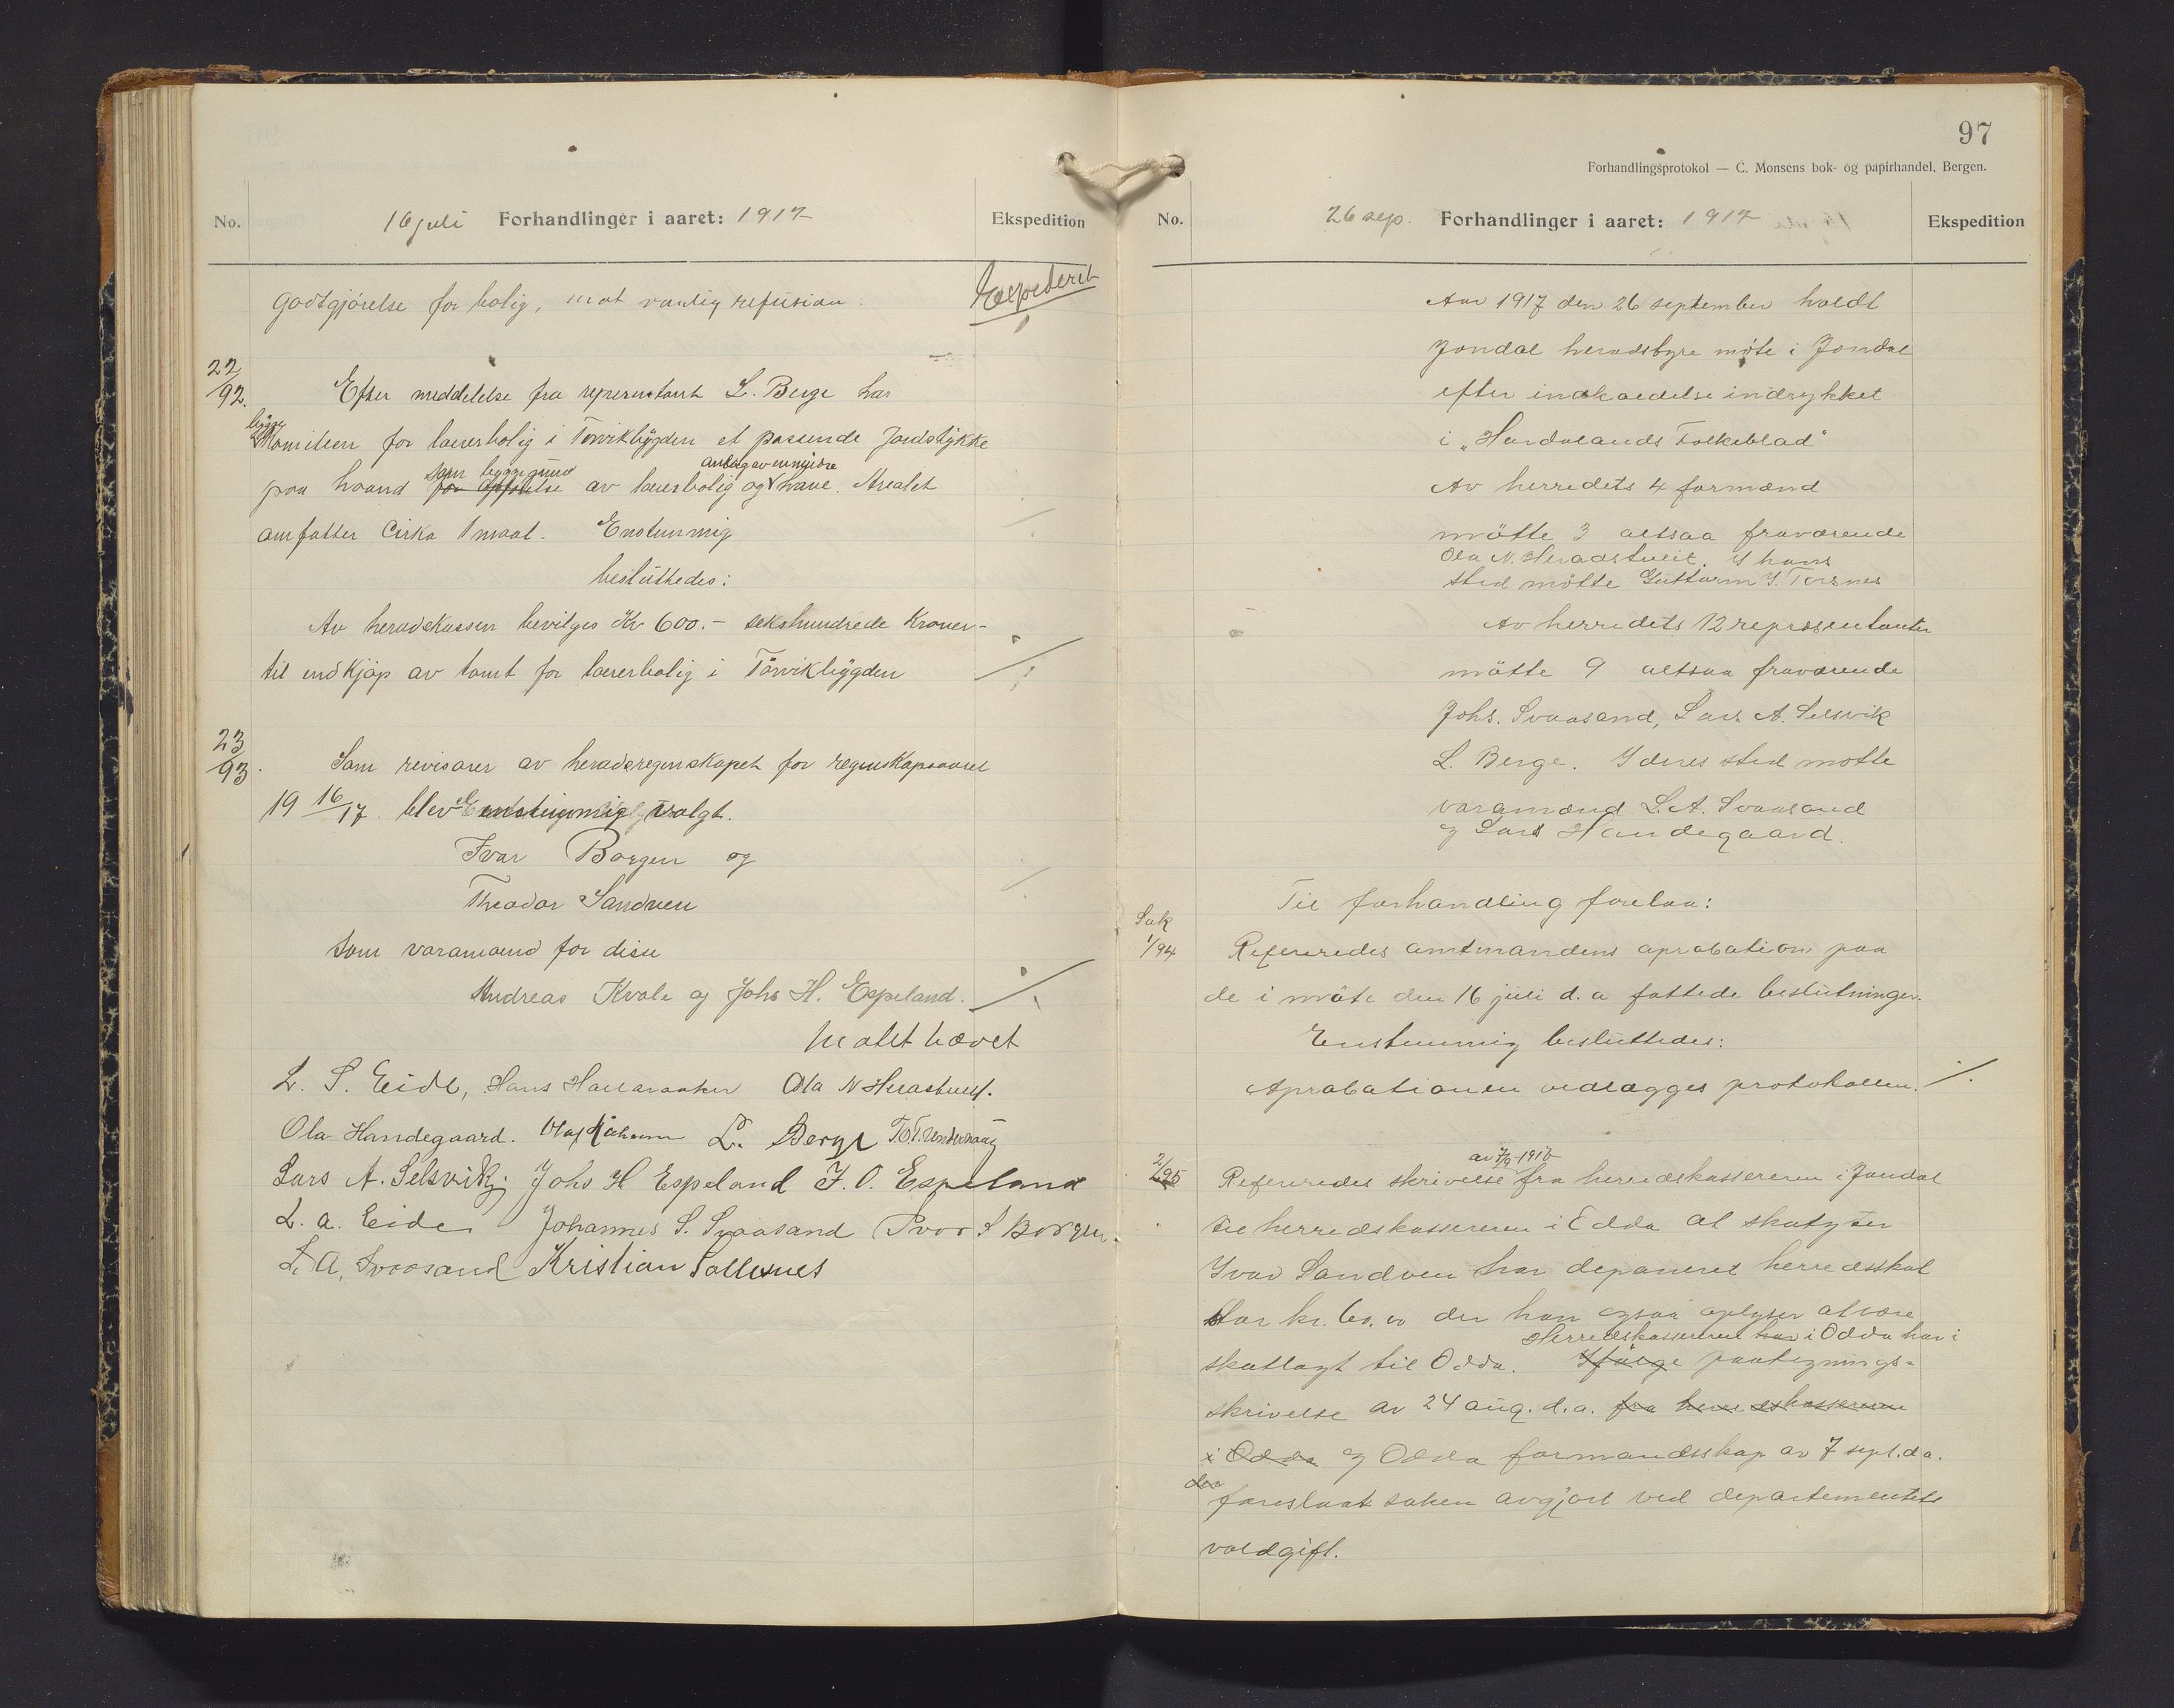 No.
16 juli Forhandlinger i aaret: 1917
Ekspedition
Godtgjörelse for bolig, mot vanlig refusion.
Expederet
22/92.
Efter meddelelse fra representant L. Berge har
bygge
Komiteen for lærerbolig i Törvikbÿgden et passende Jordstÿkke
som byggegrund anlæg av en mindre
paa haand for opförelse av lærerbolig og have. Arealet
omfatter Cirka 1 maal. Enstemmig
beslüttedes:
Av heradskassen bevilges Kr 600.- sekshundrede Kroner-
til indkjöp av tomt for lærerbolig i Törvikbÿgden
23/93.
Som revisorer av heradsregnskapet for regnskapsaaret
19 16/17. blev enstemmig valgt.
Ivar Borgen og
Theodor Sandven
Som varamænd for disse
Andreas Kvale og Johs H. Espeland.
Mötet hævet
L. S. Eide, Hans Hallaraaker Ola N Heradstveit.
Ola Handegaard. Olaf L. Berge T. O. Underhaug
Lars A. Selsvik; Johs H Espeland J. O. Espeland
L. A. Eide Johannes S. Svaasand Ivar S Borgen.
L. A. Svaasand Kristian Sollesnes
97
Forhandlingsprotokol — C. Monsens bok- og papirhandel, Bergen.
No.
26 sep. Forhandlinger i aaret: 1917
Ekspedition
Aar 1917 den 26 september holdt
Jondal heradstyre möte i Jondal
efter indkaldelse indrykket
i "Hardalands Folkeblad"
Av herredets 4 formænd
mötte 3 altsaa fraværende
Ola N. Heradstveit. I hans
sted mötte Guttorm I. Torsnes
Av herredets 12 repræsentanter
mötte 9 altsaa fraværende
Johs. Svaasand, Lars A. Selsvik
L. Berge. I deres sted motte
varamænd L. A. Svaasand
og Lars Handegaard.
Til forhandling forelaa:
Sak
1/94
Refereredes amtmandens aprobation paa
de i möte den 16 juli d. a fattede beslutninger.
Enstemmig besluttedes:
Aprobationen vedlægges protokollen.
av 7/9 1916
2/95
Refereredes skrivelse fra herredskassereren i Jondal
til herredskassereren i Odda at skatyter
Ivar Sandven har deponeret herredsskat
stor kr. 60.00 der han ogsaa oplyser at være
Herredskassereren har i Odda har i
skatlagt til Odda. Ifölge paategnings-
skrivelse av 24 aug. d. a. fra herredskassereren
i Odda og Odda formandsskap av 7 sept. d. a.
foreslaat saken avgjort ved departementets
voldgift.